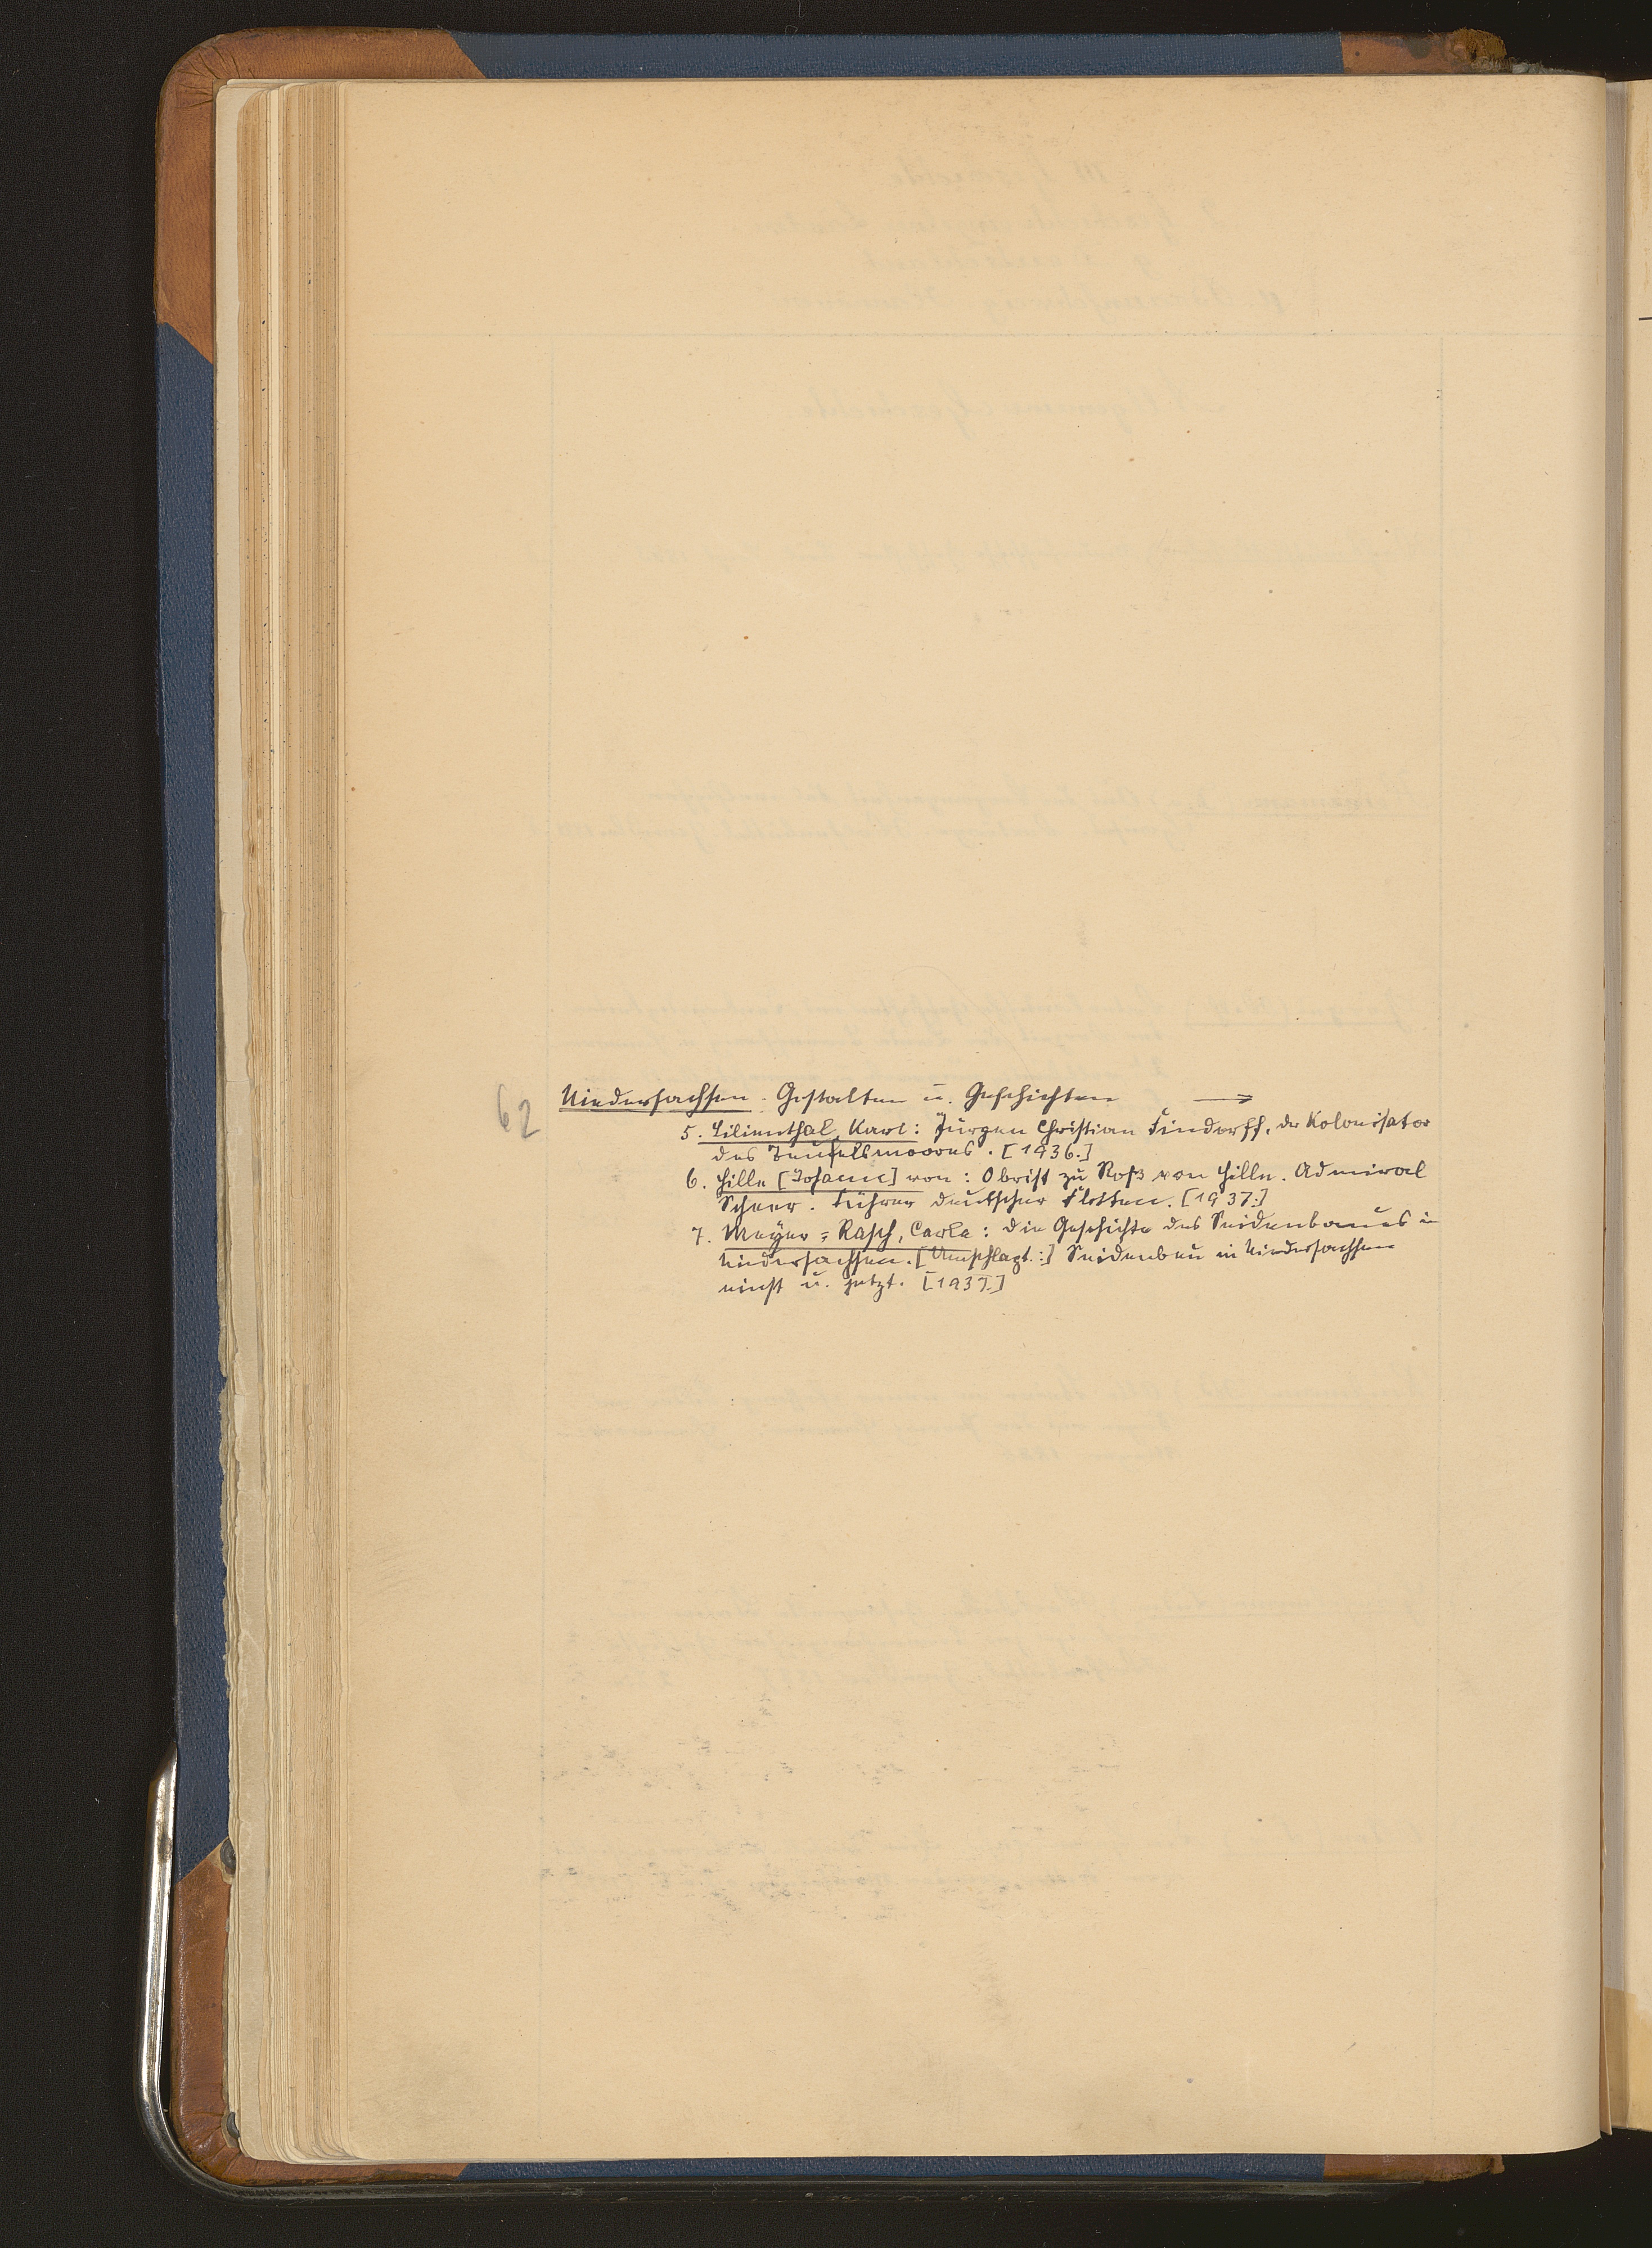 62 Niedersachsen. Gestalten u. Geschichten →
5. Lilienthal, Karl: Jürgen Christian Findorff, der Kolonisator
des Teufelsmoores. [1936.]
6. Hille [Johann] von: Obrist zu Roß von Hille. Admiral
Scheer. Führer deutscher Flotten. [1937.]
7. Meyer=Rasch, Carla: Die Geschichte des Seidenbaues in
Niedersachsen. [Umschlagt.:] Seidenbau in Niedersachsen
einst u. jetzt. [1937.]